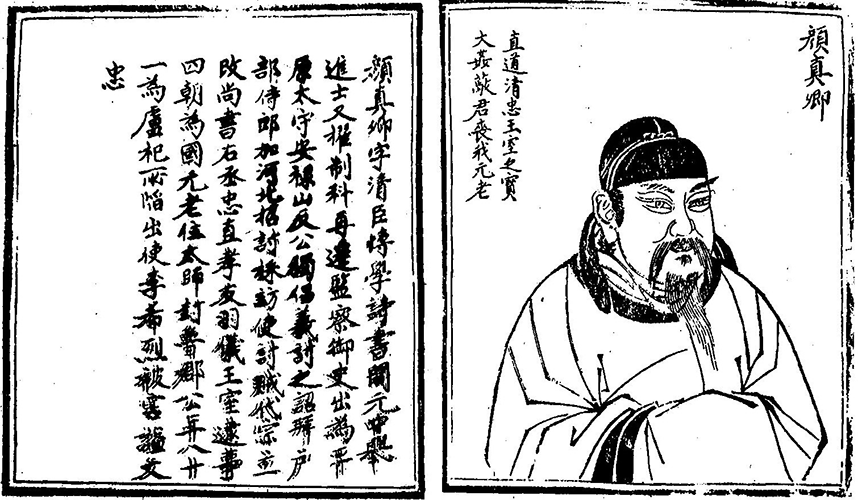 顏真卿
直道清忠王室之寶
大姦蔽君喪我元老
顏真卿字清臣愽學詩書開元中舉
進士又擢制科再遷監察御史出為平
原太守安祿山反公獨倡義討之詔拜户
部侍郎加河北招討採訪使討賊代宗立
改尚書右丞忠直孝友羽儀王室逮事
四朝為國元老位太師封魯郡公年八廿
一為盧杞所陷出使李希烈被害謚文
忠